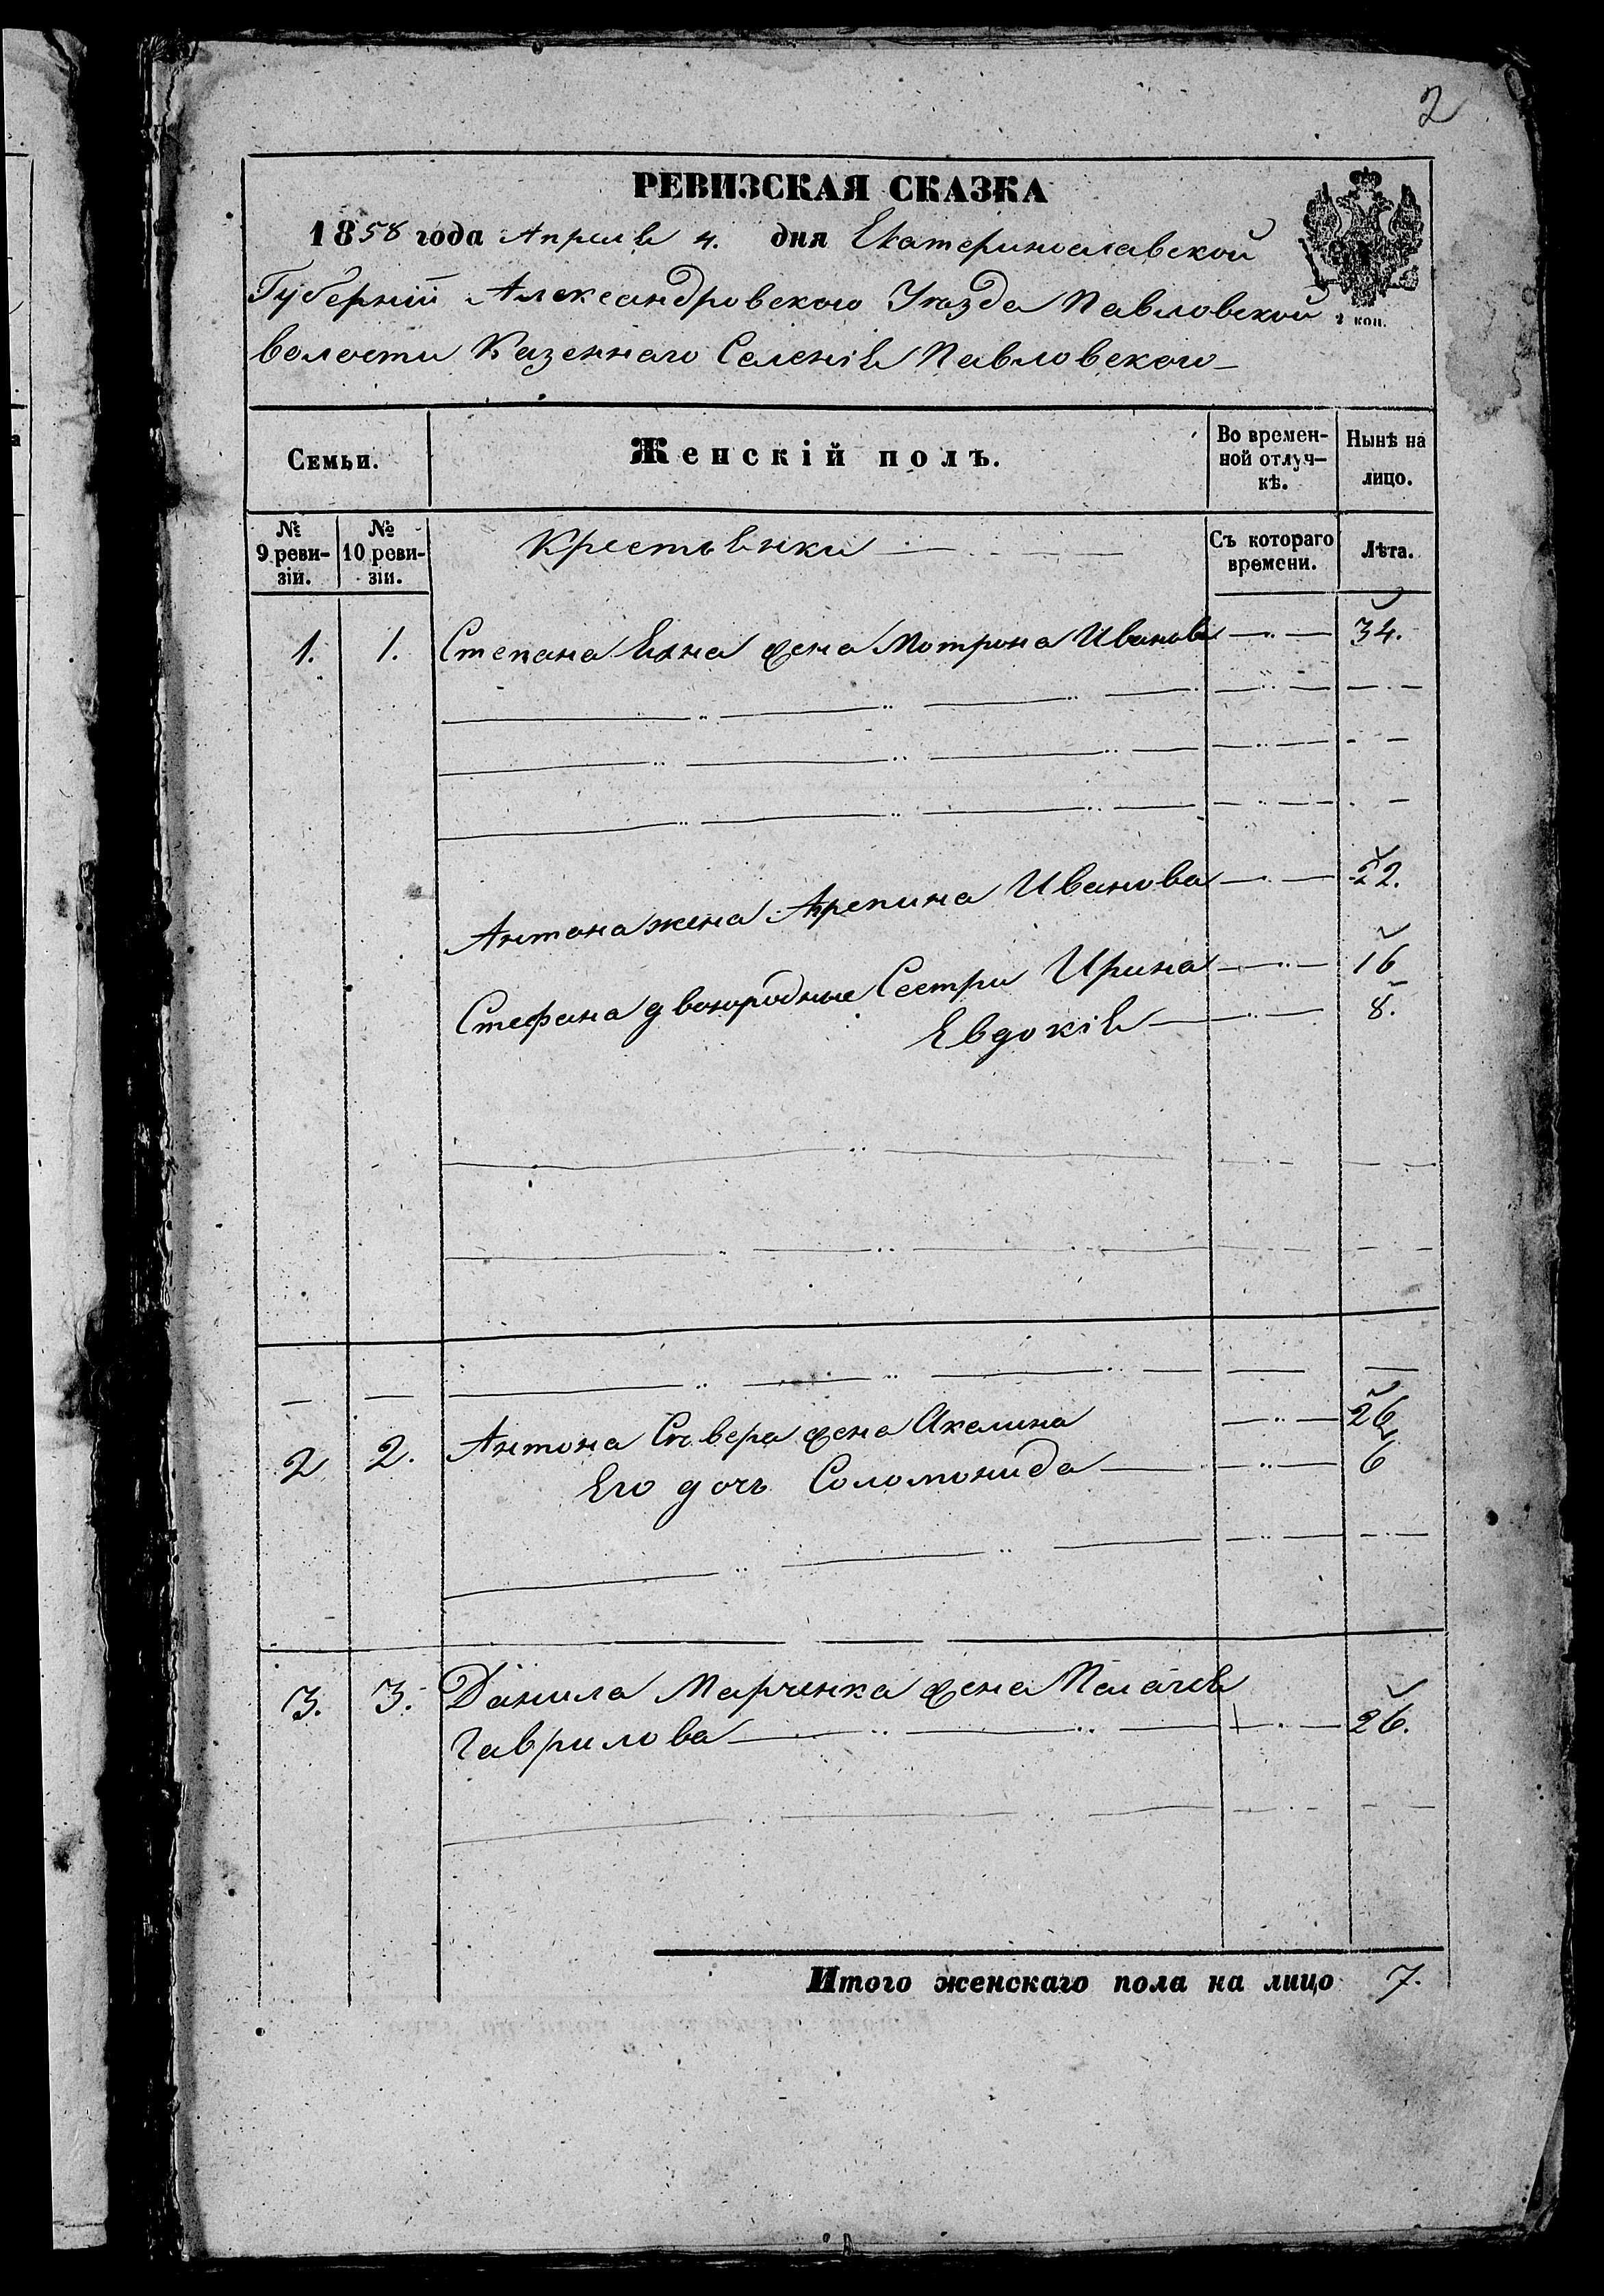 2
РЕВИЗСКАЯ СКАЗКА
1858 года Апреля 4. дня Екатеринославской
Губерніи Александровского Уезда Павловской
2 коп.
волости Казеннаго Селенія Павловского
Семьи.
Женскій полъ.
Во времен-
ной отлуч-
кѣ.
Нынѣ на
лицо.
№
9 реви-
зіи.
№
10 реви-
зіи.
Крестьянки
Съ котораго
времени.
Лѣта.
1. 1. Степана жена Мотрона Иванова 34.
Антона жена Агрепина Иванова 22.
Стефана двоюродные Сестри Ирина 16
Евдокія 8.
2 2. Антона жена Акилина 26
Его дочь Соломонида 6
3. 3. Данила Марченка жена Пелагея
Гаврилова 26.
Итого женскаго пола на лицо 7.